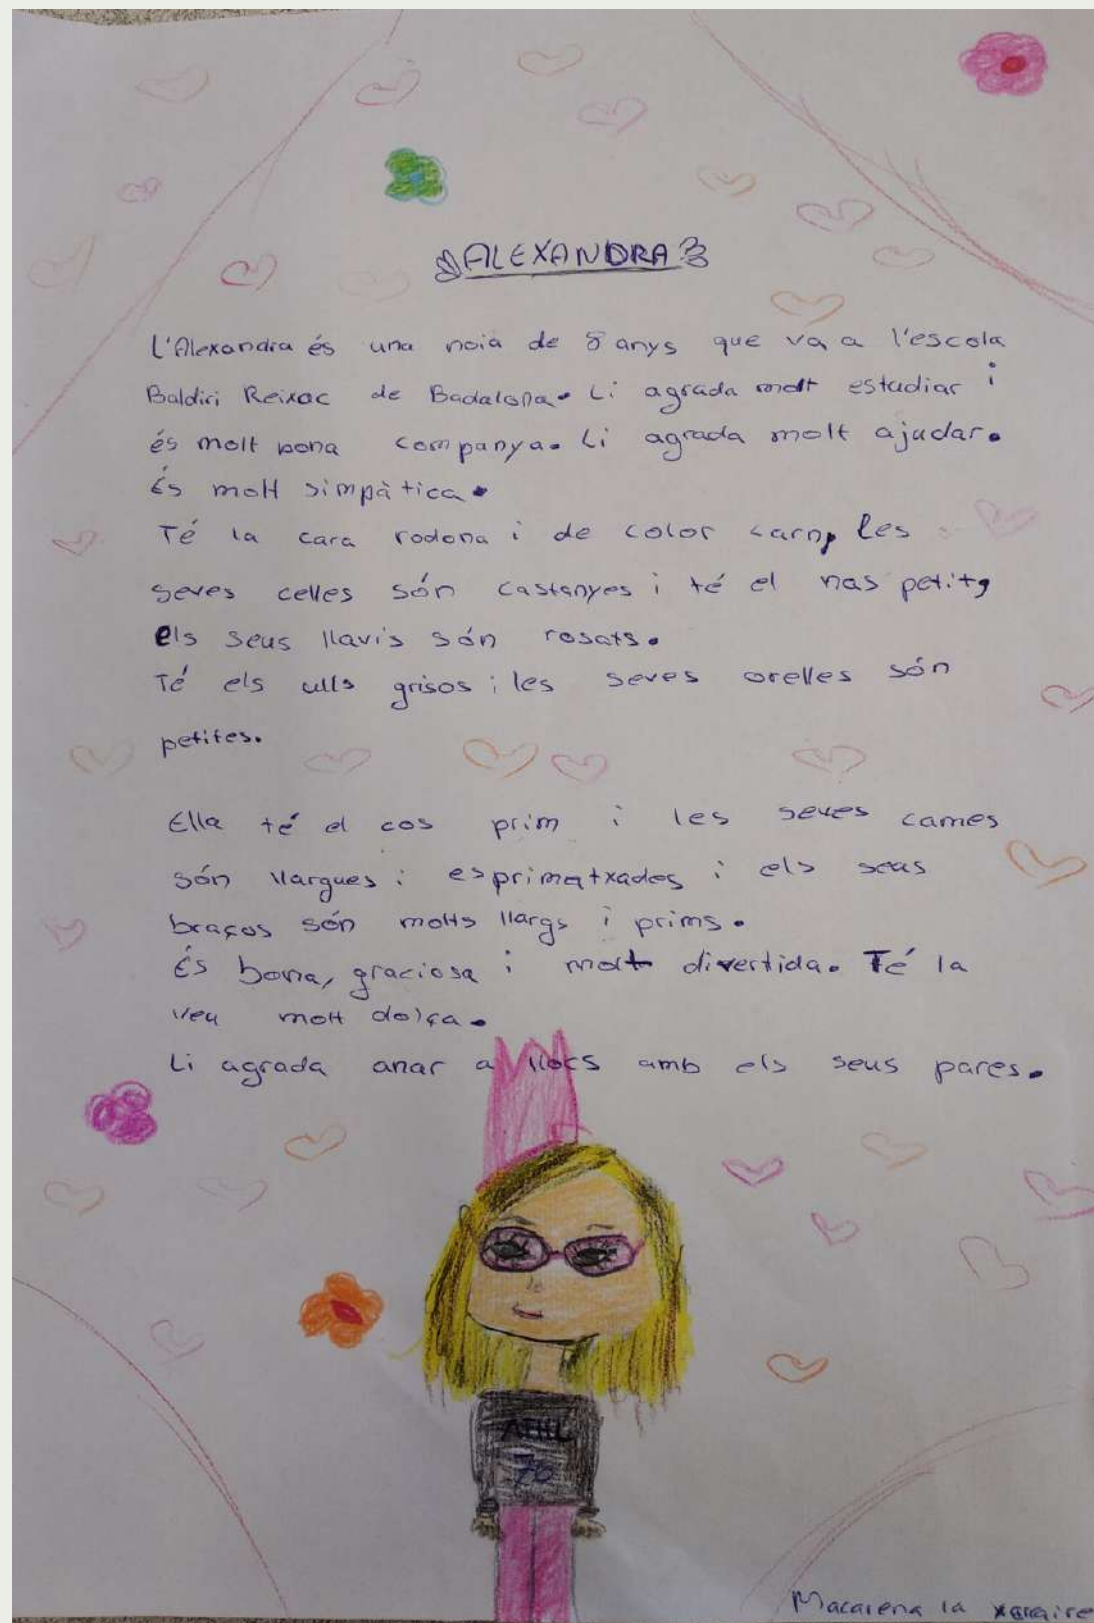 ALEXANDRA
L'Alexandra és una noia de 8 anys que va a l'escola
Baldiri Reixac de Badalona. Li agrada molt estudiar i
és molt bona companya. Li agrada molt ajudar.
És molt simpàtica.
Té la cara rodona i de color carn, les
seves celles són castanyes i té el nas petit,
els seus llavis són rosats.
Té els ulls grisos i les seves orelles són
petites.
Ella té el cos prim i les seves cames
són llargues i esprimatxades i els seus
braços són molts llargs i prims.
És bona, graciosa i molt divertida. Té la
veu molt dolça.
Li agrada anar a llocs amb els seus pares.
70
Macarena la